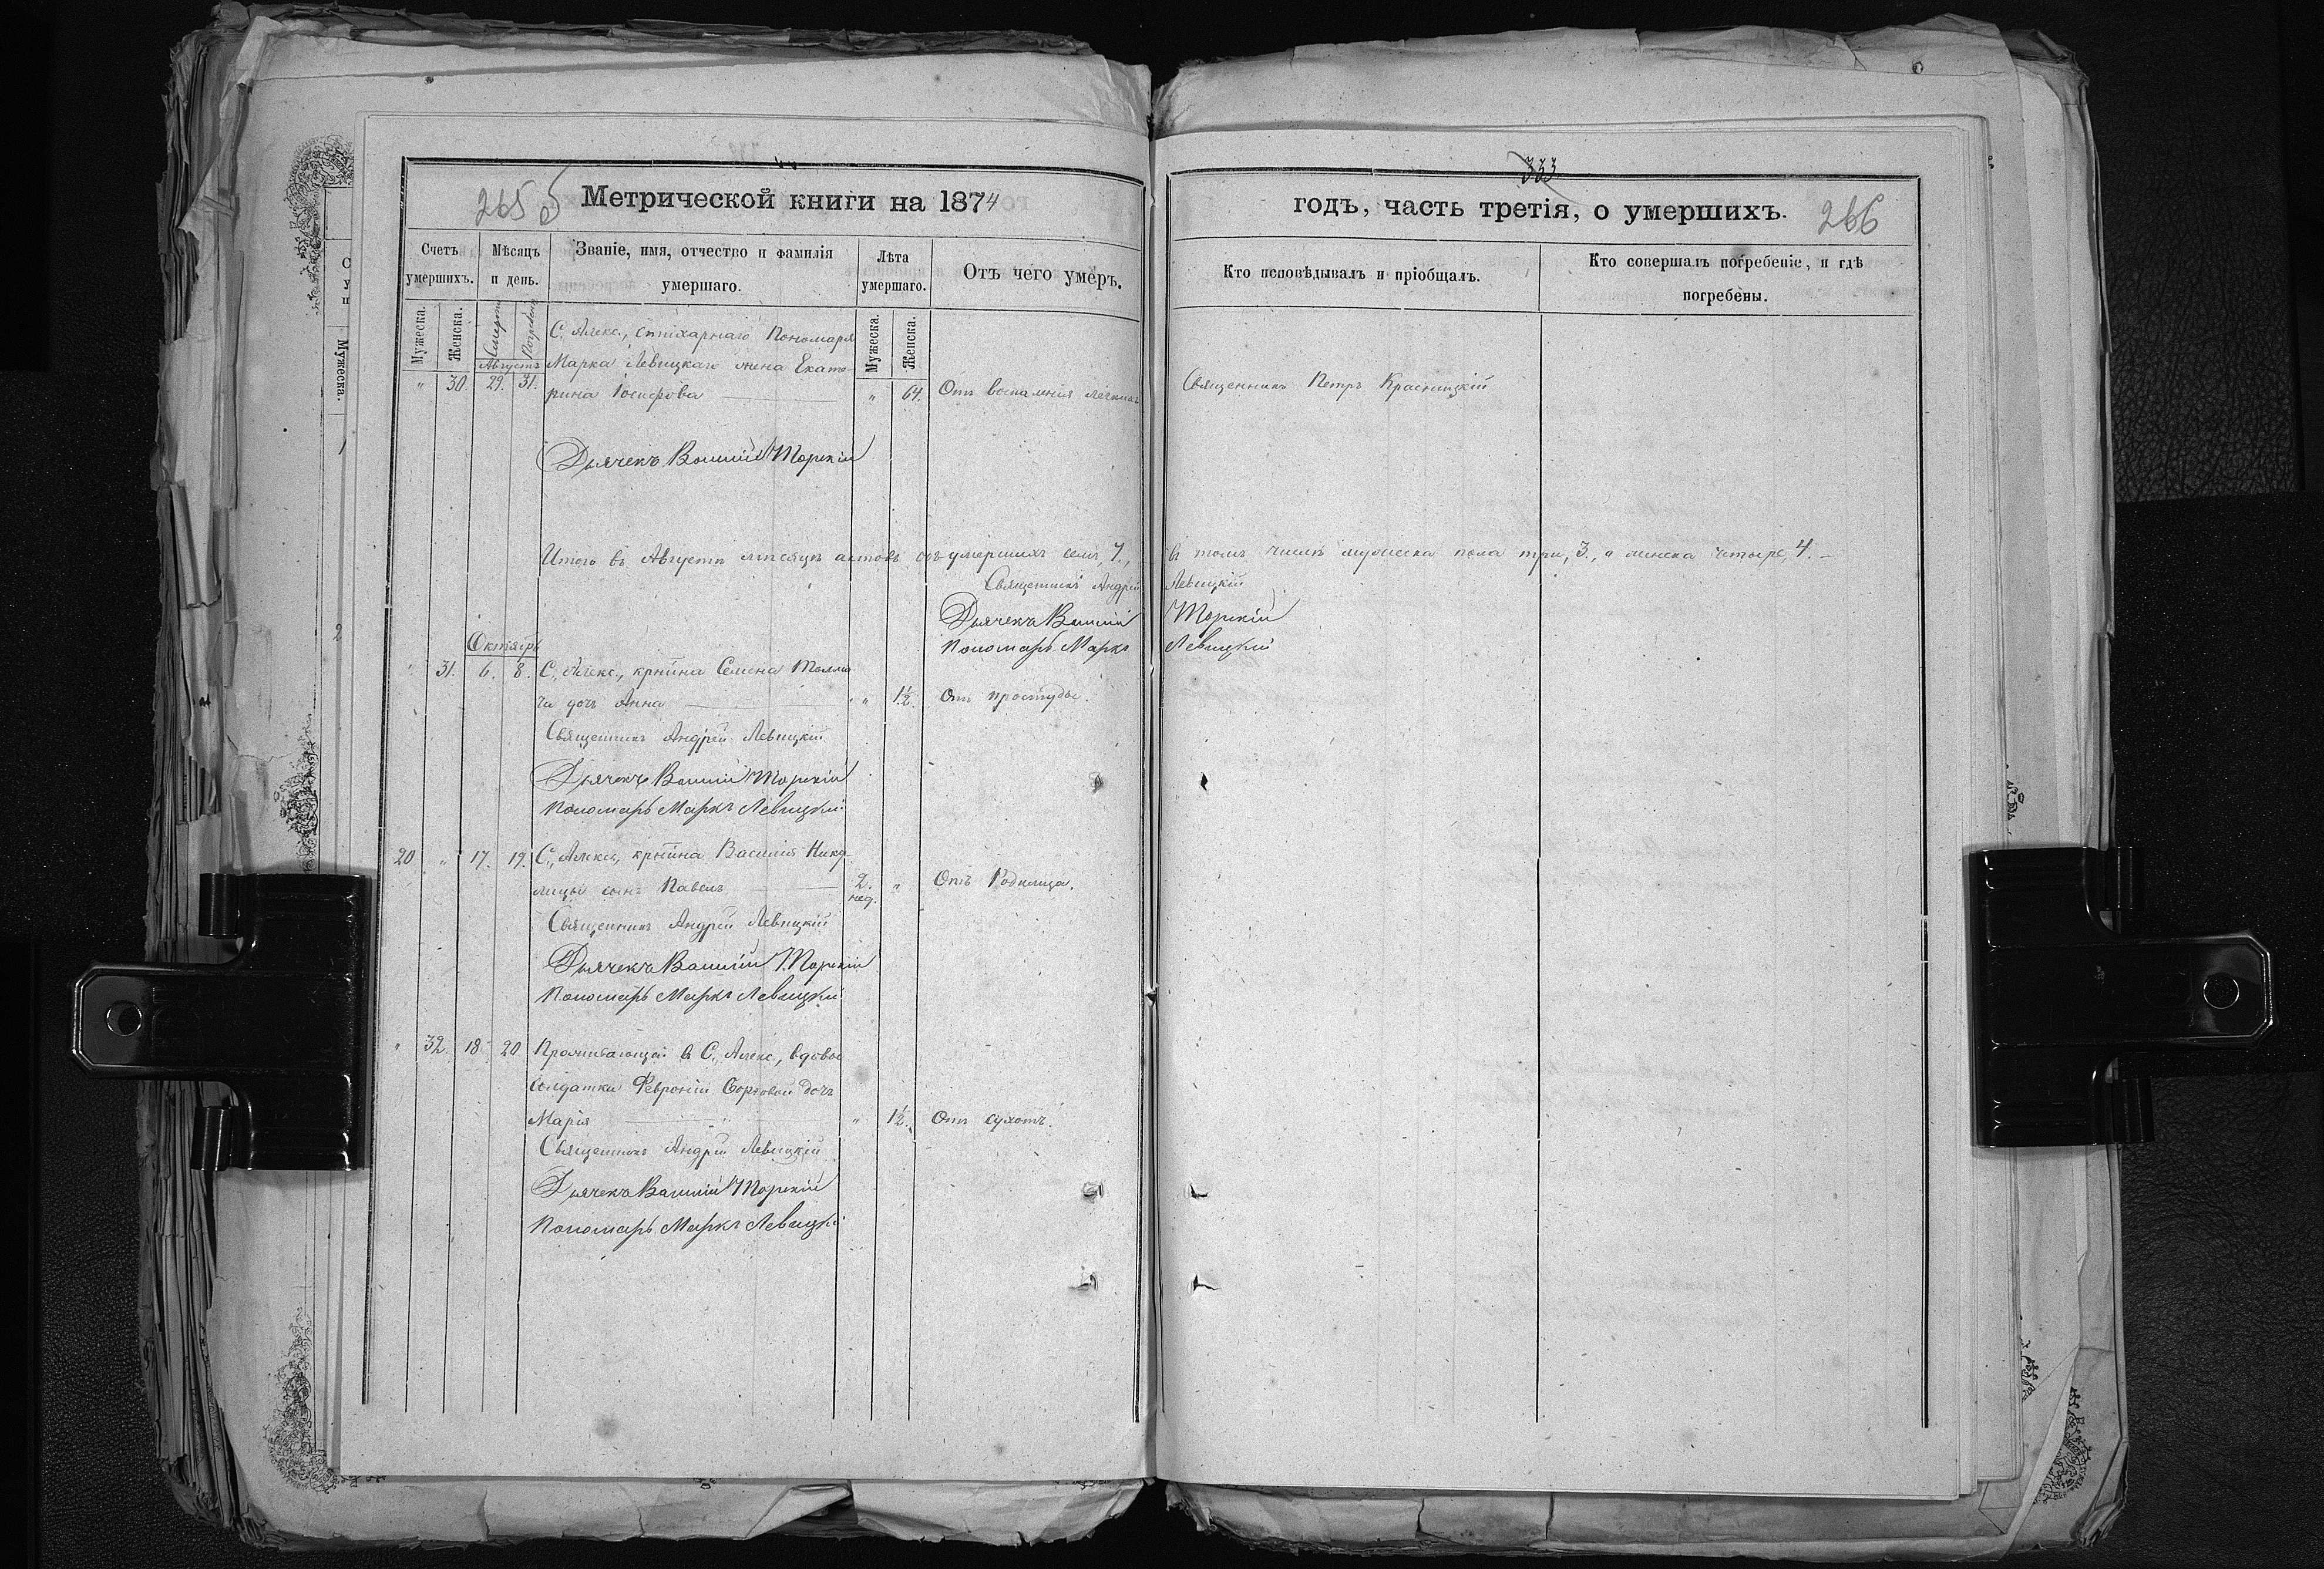 333
265 об Метрической книги на 1874
годъ, часть третія, о умершихъ. 266
Счетъ умершихъ.
Мѣсяцъ и день.
Званіе, имя, отчество и фамилія умершаго.
Лѣта умершаго.
Отъ чего умеръ.
Кто исповѣдывалъ и пріобщалъ.
Кто совершалъ погребеніе, и гдѣ погребены.
Мужеска. Женска. Смерти Погребен. Мужеска. Женска.
С. Алекс., стихарнаго Пономаря
Августъ Марка Левицкаго жена Екате-
" 30. 29. 31. рина Іосифова " 64. Отъ воспаленія легкихъ Священникъ Петръ Красницкій
Дьячекъ Василій Торскій
Итого въ Августѣ мѣсяцѣ актовъ объ умершихъ семь, 7., въ томъ числѣ мужеска пола три, 3., а женска четыре, 4.
Священникъ Андрей Левицкій
Дьячекъ Василій Торскій
Пономарь Маркъ Левицкій
Октябрь
" 31. 6. 8. С. Алекс., крстина Семена
ча дочь Анна " 1½. Отъ простуды.
Священникъ Андрей Левицкій
Дьячекъ Василій Торскій
Пономарь Маркъ Левицкій
20 " 17. 19. С. Алекс., крстина Василія
лицы сынъ Павелъ 2. нед. " Отъ Родимца.
Священникъ Андрей Левицкій
Дьячекъ Василій Торскій
Пономарь Маркъ Левицкій
" 32. 18. 20 Проживающей въ С. Алекс., вдовы
солдатки Февроніи дочь
Марія " 1½. Отъ сухотъ.
Священникъ Андрей Левицкій
Дьячекъ Василій Торскій
Пономарь Маркъ Левицкій